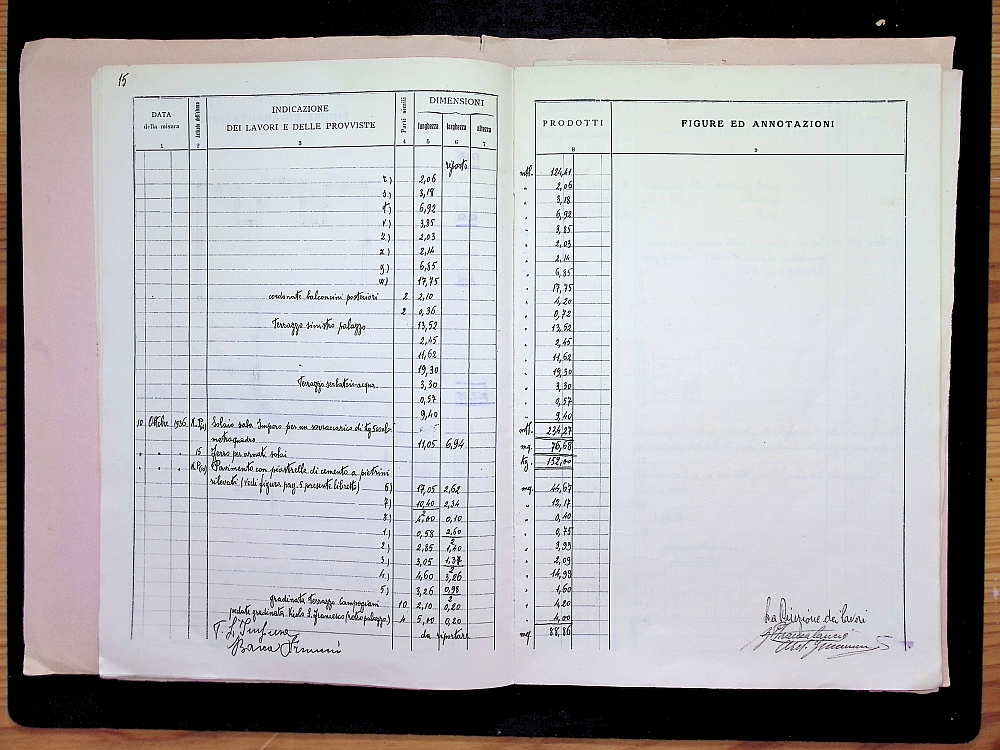 15
DATA
della misura
Articolo dell'elenco
INDICAZIONE
DEI LAVORI E DELLE PROVVISTE
Parti simili
DIMENSIONI
lunghezza larghezza altezza
PRODOTTI
FIGURE ED ANNOTAZIONI
1 2 3 4 5 6 7 8 9
riporto mtl. 124,41
r) 2,06 " 2,06
s) 3,18 " 3,18
t) 6,92 " 6,92
v) 3,85 " 3,85
z) 2,03 " 2,03
x) 2,14 " 2,14
y) 6,85 " 6,85
w) 17,75 " 17,75
cordonate balconcini posteriori 2 2,10 " 4,20
2 0,36 " 0,72
Terrazzo sinistro palazzo 13,52 " 13,52
2,45 " 2,45
11,62 " 11,62
19,30 " 19,30
Terrazzo serbatoio acqua 3,30 " 3,30
0,57 " 0,57
9,40 " 9,40
mtl. 234,27
10 Ottobre 1936 Solaio per un sovraccarico di Kg.
metroquadro 11,05 6,94 mq. 76,68
" " " 15 Ferro per armati solai Kg. 152,00
" " " Pavimento con piastrelle di cemento a pietrini
rilevati (vedi figura pag. 5 presente libretto) 6) 17,05 2,62 mq. 44,67
7) 10,40 2,34 " 12,17
2
8) 4,00 0,10 " 0,40
1) 0,58 2,60 " 0,75
2
2) 2,85 1,40 " 3,99
3) 3,05 1,37 " 2,09
2
4) 4,60 3,26 " 14,99
5) 3,26 0,98 " 1,60
2
gradinata Terrazzo Campogiani 10 2,10 0,20 " 4,20
pedate gradinata Vicolo S. Francesco (retro palazzo) 4 5,00 0,20 " 4,00
da riportare mq. 88,86
La Direzione dei lavori